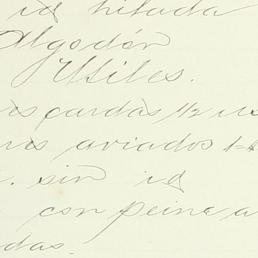 id hilada
Algodón
Utiles.
cardas 1/2 us
aviados
sin id
con peine a
das.